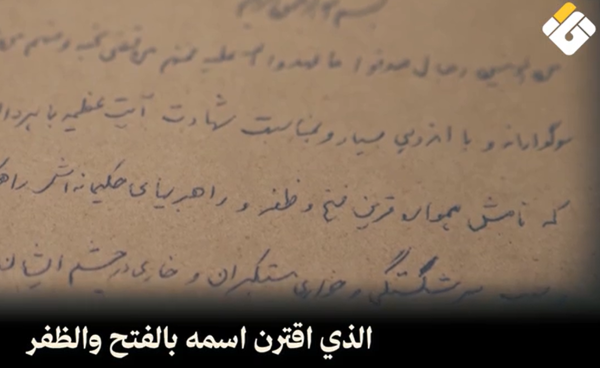 بسم الله الرحمن الرحیم
من المؤمنین رجال صدقوا ما عاهدوا الله علیه فمنهم من قضی نحبه و منهم من
سوگوارانه و با اندوهی بسیار و بمناسبت شهادت آیت عظیمه با
که نامش همواره قرین فتح و ظفر و راهبریهای حکیمانه اش
سرشکستگی و خواری مستکبران و خاری در چشم ایشان
الذي اقترن اسمه بالفتح والظفر